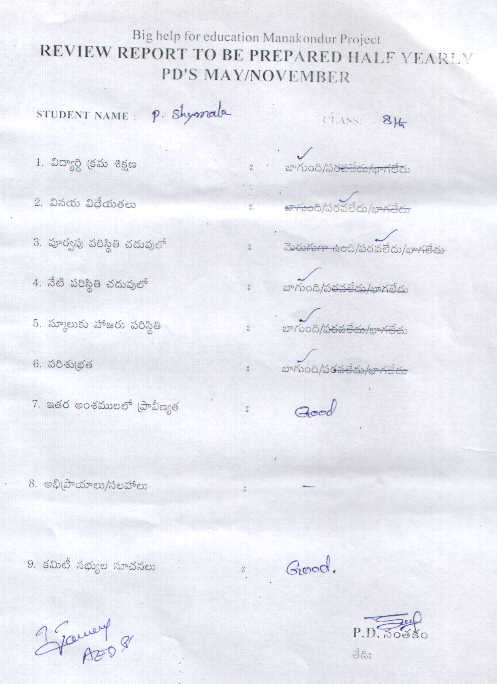 Big help for education Manakondur Project
REVIEW REPORT TO BE PREPARED HALF YEARLY
PD'S MAY/NOVEMBER
STUDENT NAME : P. Shyamala CLASS: 8th
1. విద్యార్థి క్రమ శిక్షణ : బాగుంది/పరవలేదు/భాగలేదు
2. వినయ విధేయతలు : బాగుంది/పరవలేదు/భాగలేదు
3. పూర్వపు పరిస్థితి చదువులో : మెరుగుగా ఉంది/పరవలేదు/భాగలేదు
4. నేటి పరిస్థితి చదువులో : బాగుంది/పరవలేదు/భాగలేదు
5. స్కూలుకు హాజరు పరిస్థితి : బాగుంది/పరవలేదు/భాగలేదు
6. పరిశుభ్రత : బాగుంది/పరవలేదు/భాగలేదు
7. ఇతర అంశములలో ప్రావీణ్యత : Good
8. అభిప్రాయాలు/సలహాలు : –
9. కమిటీ సభ్యుల సూచనలు : Good.
P.D. సంతకం
తేది